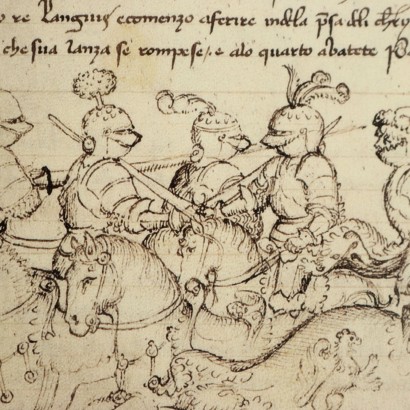 o re Languis ecomenzo aferire indela psa delli
che sua lanza se rompese e alo quarto abatete